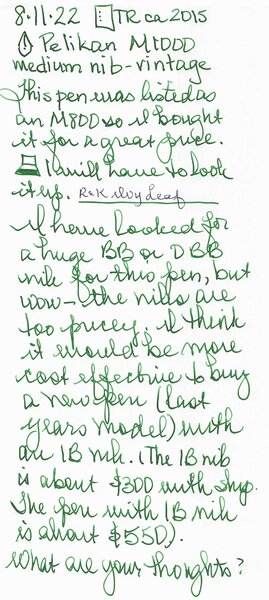 8.11.22 TR ca 2015
Pelikan M1000
medium nib-vintage
This pen was listed as
an M800 so I bought
it for a great price.
I will have to look
it up. R+K Ivy Leaf
I have looked for
a huge BB or OBB
nib for this pen, but
wow-the nibs are
too pricey. I think
it would be more
cost effective to buy
a new pen (last
years model) with
an IB nib. (The IB nib
is about $300 with ship.
The pen with IB nib
is about $550).
What are your thoughts?